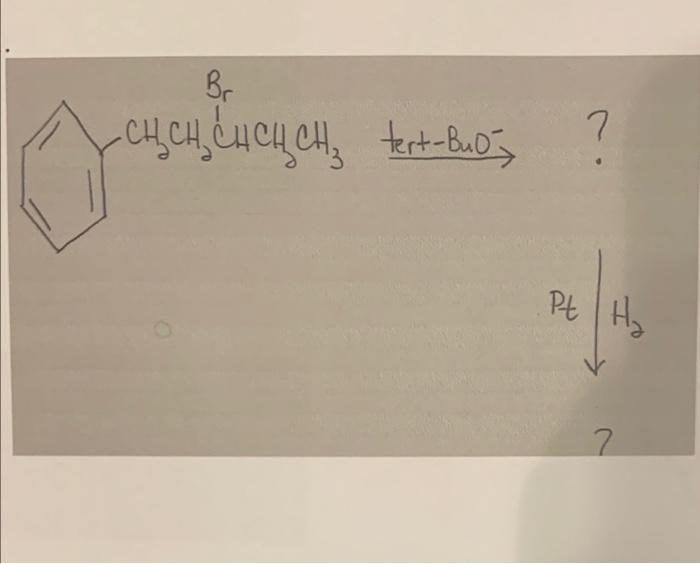 Br
CH₂CH₂CHCH₂CH₃ tert-BuO⁻ ?
Pt H₂
?